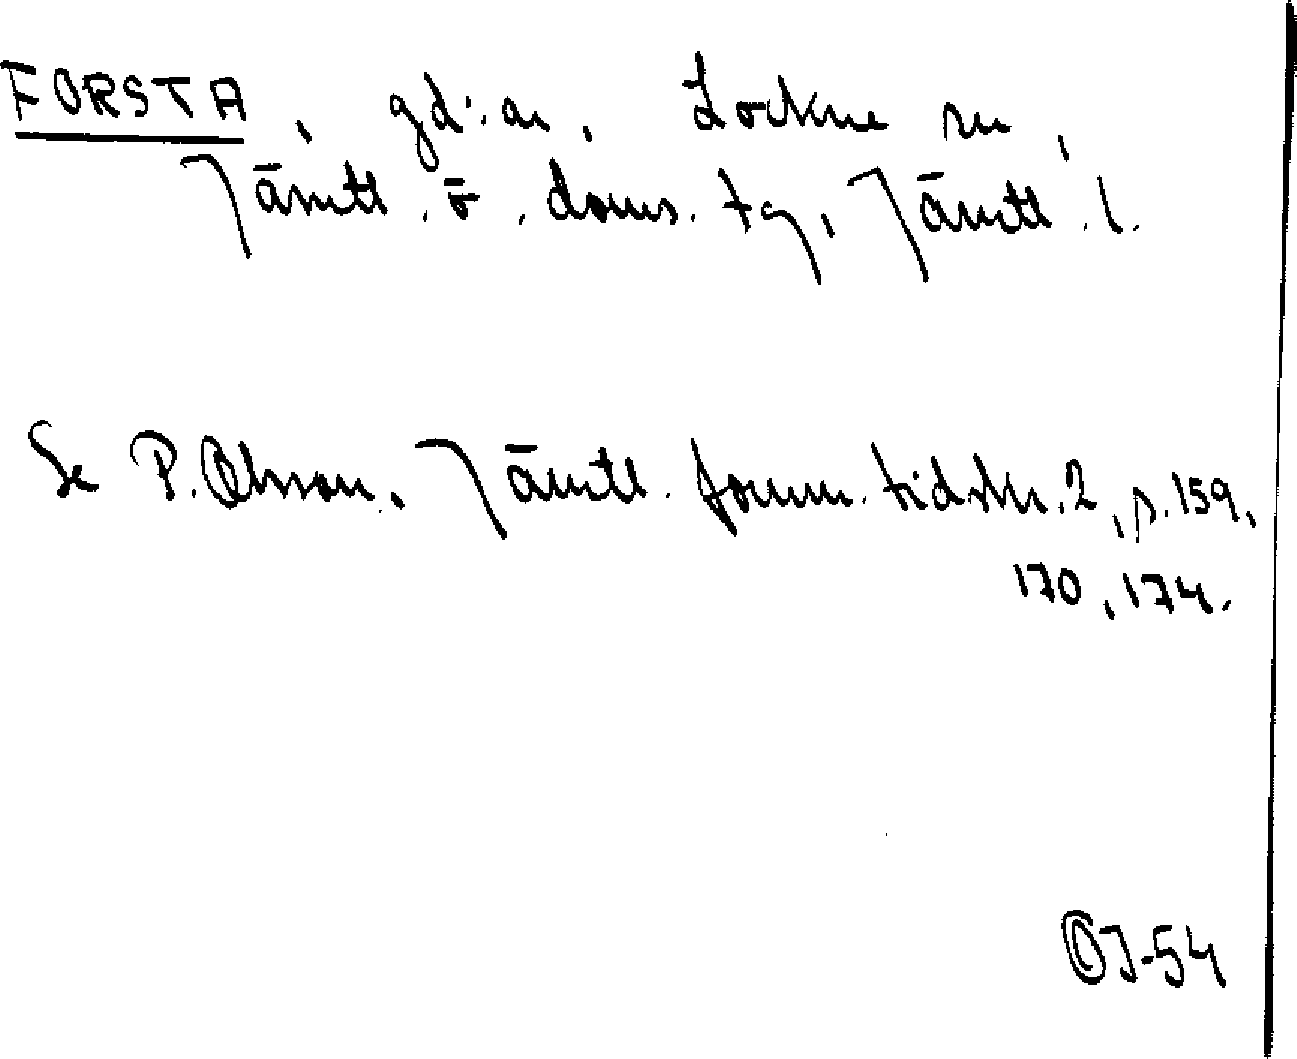 FORSTA, gd:ar, Lockne sn,
Jämtl. ö. doms. tg, Jämtl. l.
Se P. Olsson, Jämtl. fornm. tidskr. 2, s. 159,
170, 174.
OJ-54